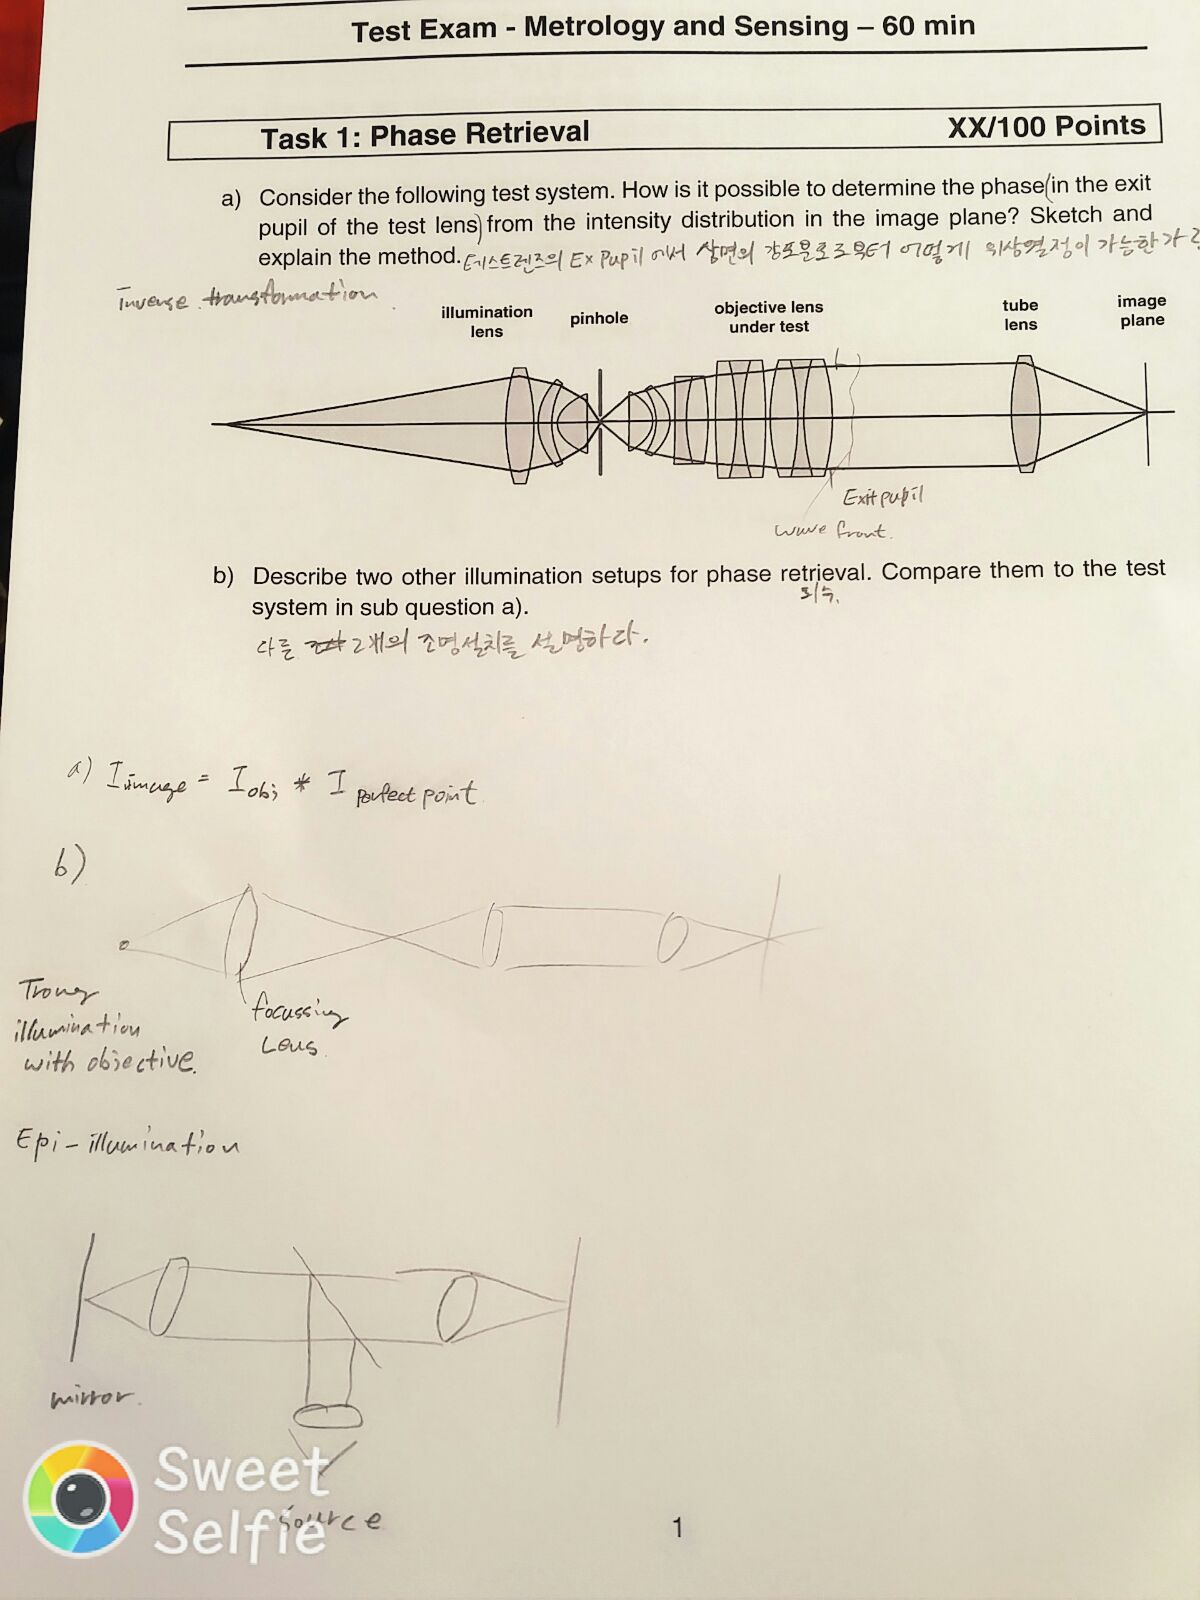 Test Exam - Metrology and Sensing – 60 min
Task 1: Phase Retrieval XX/100 Points
a) Consider the following test system. How is it possible to determine the phase(in the exit
pupil of the test lens)from the intensity distribution in the image plane? Sketch and
explain the method. 테스트렌즈의 Ex Pupil 에서 상면의 강포분로부터 어떻게 위상열정이 가능한가
Inverse transformation
illumination
lens
pinhole
objective lens
under test
tube
lens
image
plane
Exit pupil
wave front.
b) Describe two other illumination setups for phase retrieval. Compare them to the test
system in sub question a).
회수.
다른 2개의 조명설치를 설명하다.
a) I image = I obj * I perfect point
b)
illumination
with objective.
focussing
Lens.
Epi-illumination
mirror.
source
Sweet
Selfie
1